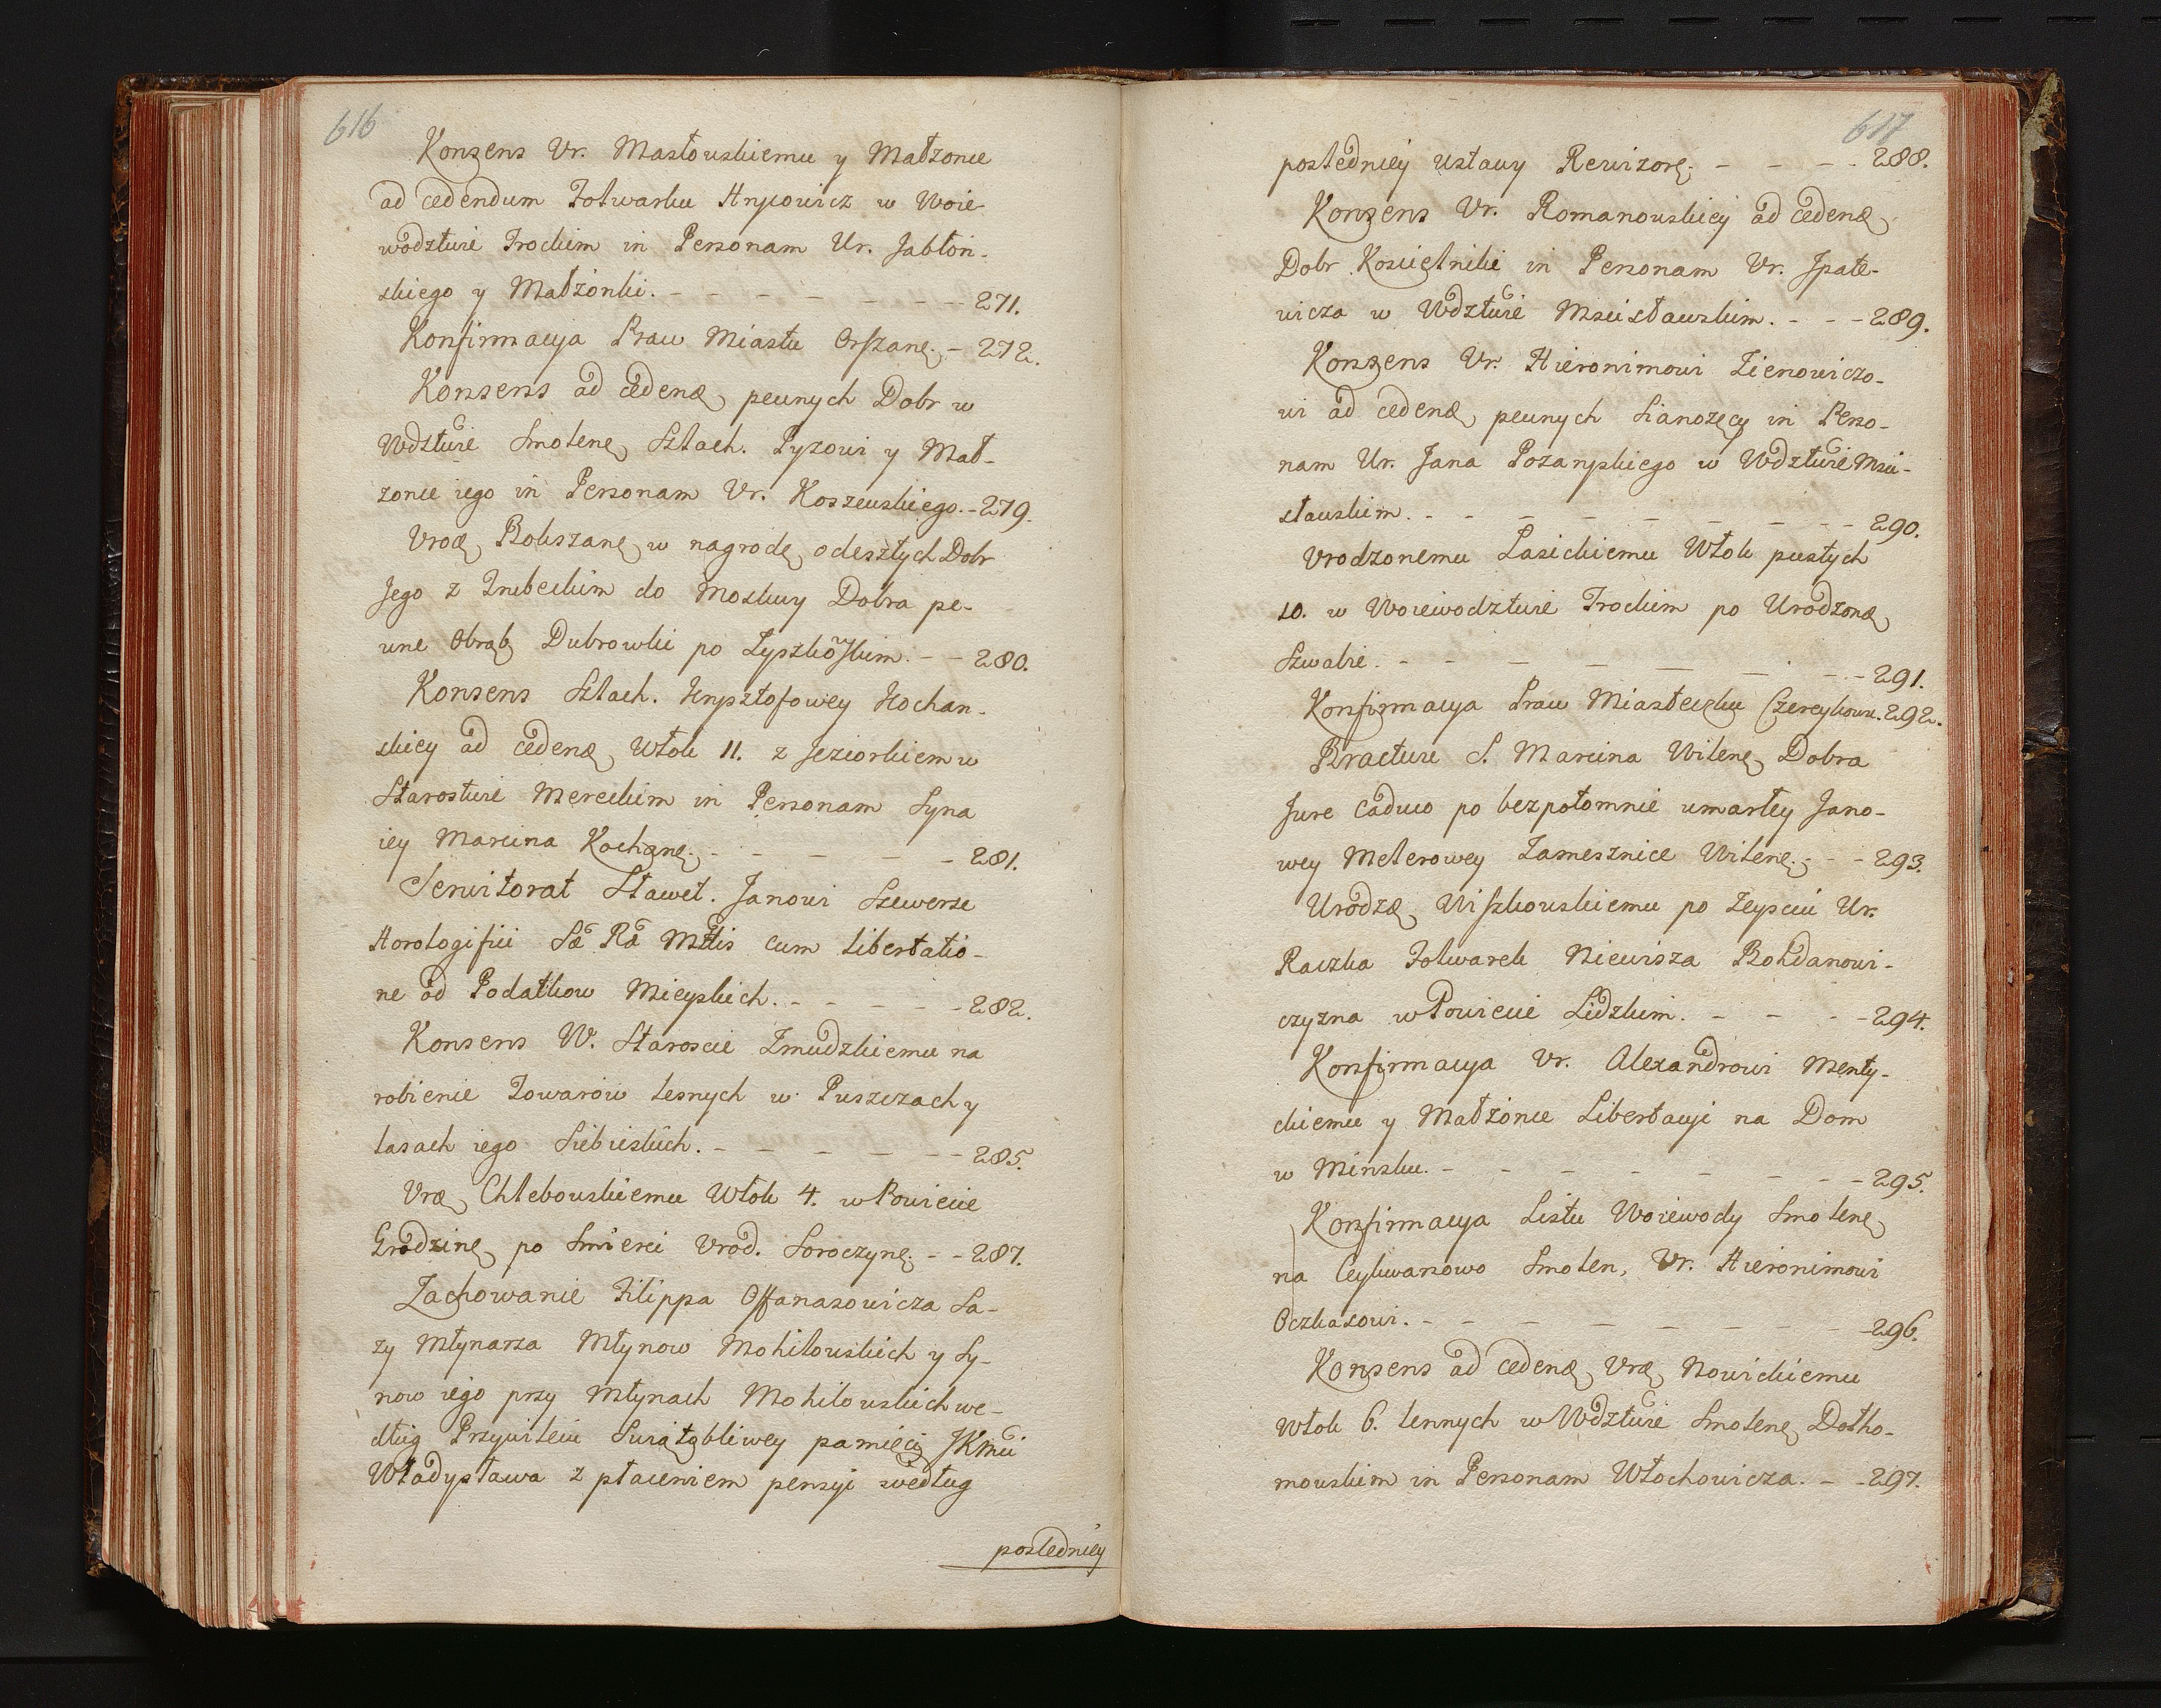 616
Konsens Ur. Masłouskiemu y Małzonce
ad cedendum Folwarku Hrycowicz w Woie-
wodztwie Trockim in Personam Ur. Jabłoń-
skiego y Małżonki. - - - - - - - 271.
Konfirmacya Praw Miastu Orszanę. - 272.
Konsens ad cedenã pewnych Dobr w
Wdztwie Smolenę Szlach. Pyzowi y Mał-
zonce iego in Personam Ur. Koszewskiego. - 279.
Uroã Bokszanę w nagrodę odeszłych Dobr
Jego z Trubeckim do Moskwy Dobra pe-
wne Obrąb Dubrowki po Łyszkõskim. - - 280.
Konsens Szlach. Krysztofowey Kochan-
skiey ad cedenã Włok 11. z Jeziorkiem w
Starostwie Mereckim in Personam Syna
iey Marcina Kochanę. - - - - - 281.
Serwitorat Sławet. Janowi Szewerze
Horologifici Să Ră Mttis cum libertatio-
ne od Podatkow Mieyskich. - - - - - 282.
Konsens W. Staroscie Zmudzkiemu na
robienie Towarów lesnych w Puszczach y
lasach iego Siebieskich. - - - - - - 285.
Urã Chlebouskiemu Włok 4. w Powiecie
Grodzinę po Smierci Urod. Soroczynę. - - 287.
Zachowanie Filippa Offanasowicza Sa-
zy Młynarza Młynow Mohilowskich y Sy-
now iego przy Młynach Mohilouskich we-
dług Przywileiu Swiątobliwey pamięci JKMci
Władysława z płaceniem pensyi według
posledniey
617
posledniey ustawy Rewizorę. - - - - 288.
Konsens Ur. Romanouskiey ad cedenã
Dobr Koscielniki in Personam Ur. Jpate-
wicza w Wdztwie Mscisławskim. - - - 289.
Konsens Ur. Hieronimowi Zienowiczo-
wi ad cedenã pewnych Sianozęcy in Perso-
nam Ur. Jana Pozaryskiego w Wdztwie Msci-
sławskim. - - - - - - - - - 290.
Urodzonemu Lasickiemu Włok pustych
10. w Woiewodztwie Trockim po Urodzonã
Szwabie. - - - - - - - 291.
Konfirmacya Praw Miasteczku Czereykowu. 292.
Bractwu S. Marcina Wilenę Dobra
Jure Caduco po bezpotomnie umarłey Jano-
wey Meterowey Zamesznice Wilenę. - - 293.
Urodzã Wiszkouskiemu po Zeysciu Ur.
Raczka Folwarek Niewisza Bohdanowi-
czyzna w Powiecie Lidzkim. - - - - 294.
Konfirmacya Ur. Alexandrowi Menty-
ckiemu y Małżonce Libertacyi na Dom
w Minsku. - - - - - - - - 295.
Konfirmacya Listu Woiewody Smolenę
na Ceykwanowo Smolen, Ur. Hieronimowi
Oczkasowi. - - - - - - - - 296.
Konsens ad cedenã Urã Nowickiemu
Włok 6. lennych w Wdztwie Smolenę Dołho-
mouskim in Personam Włochowicza. - - 297.